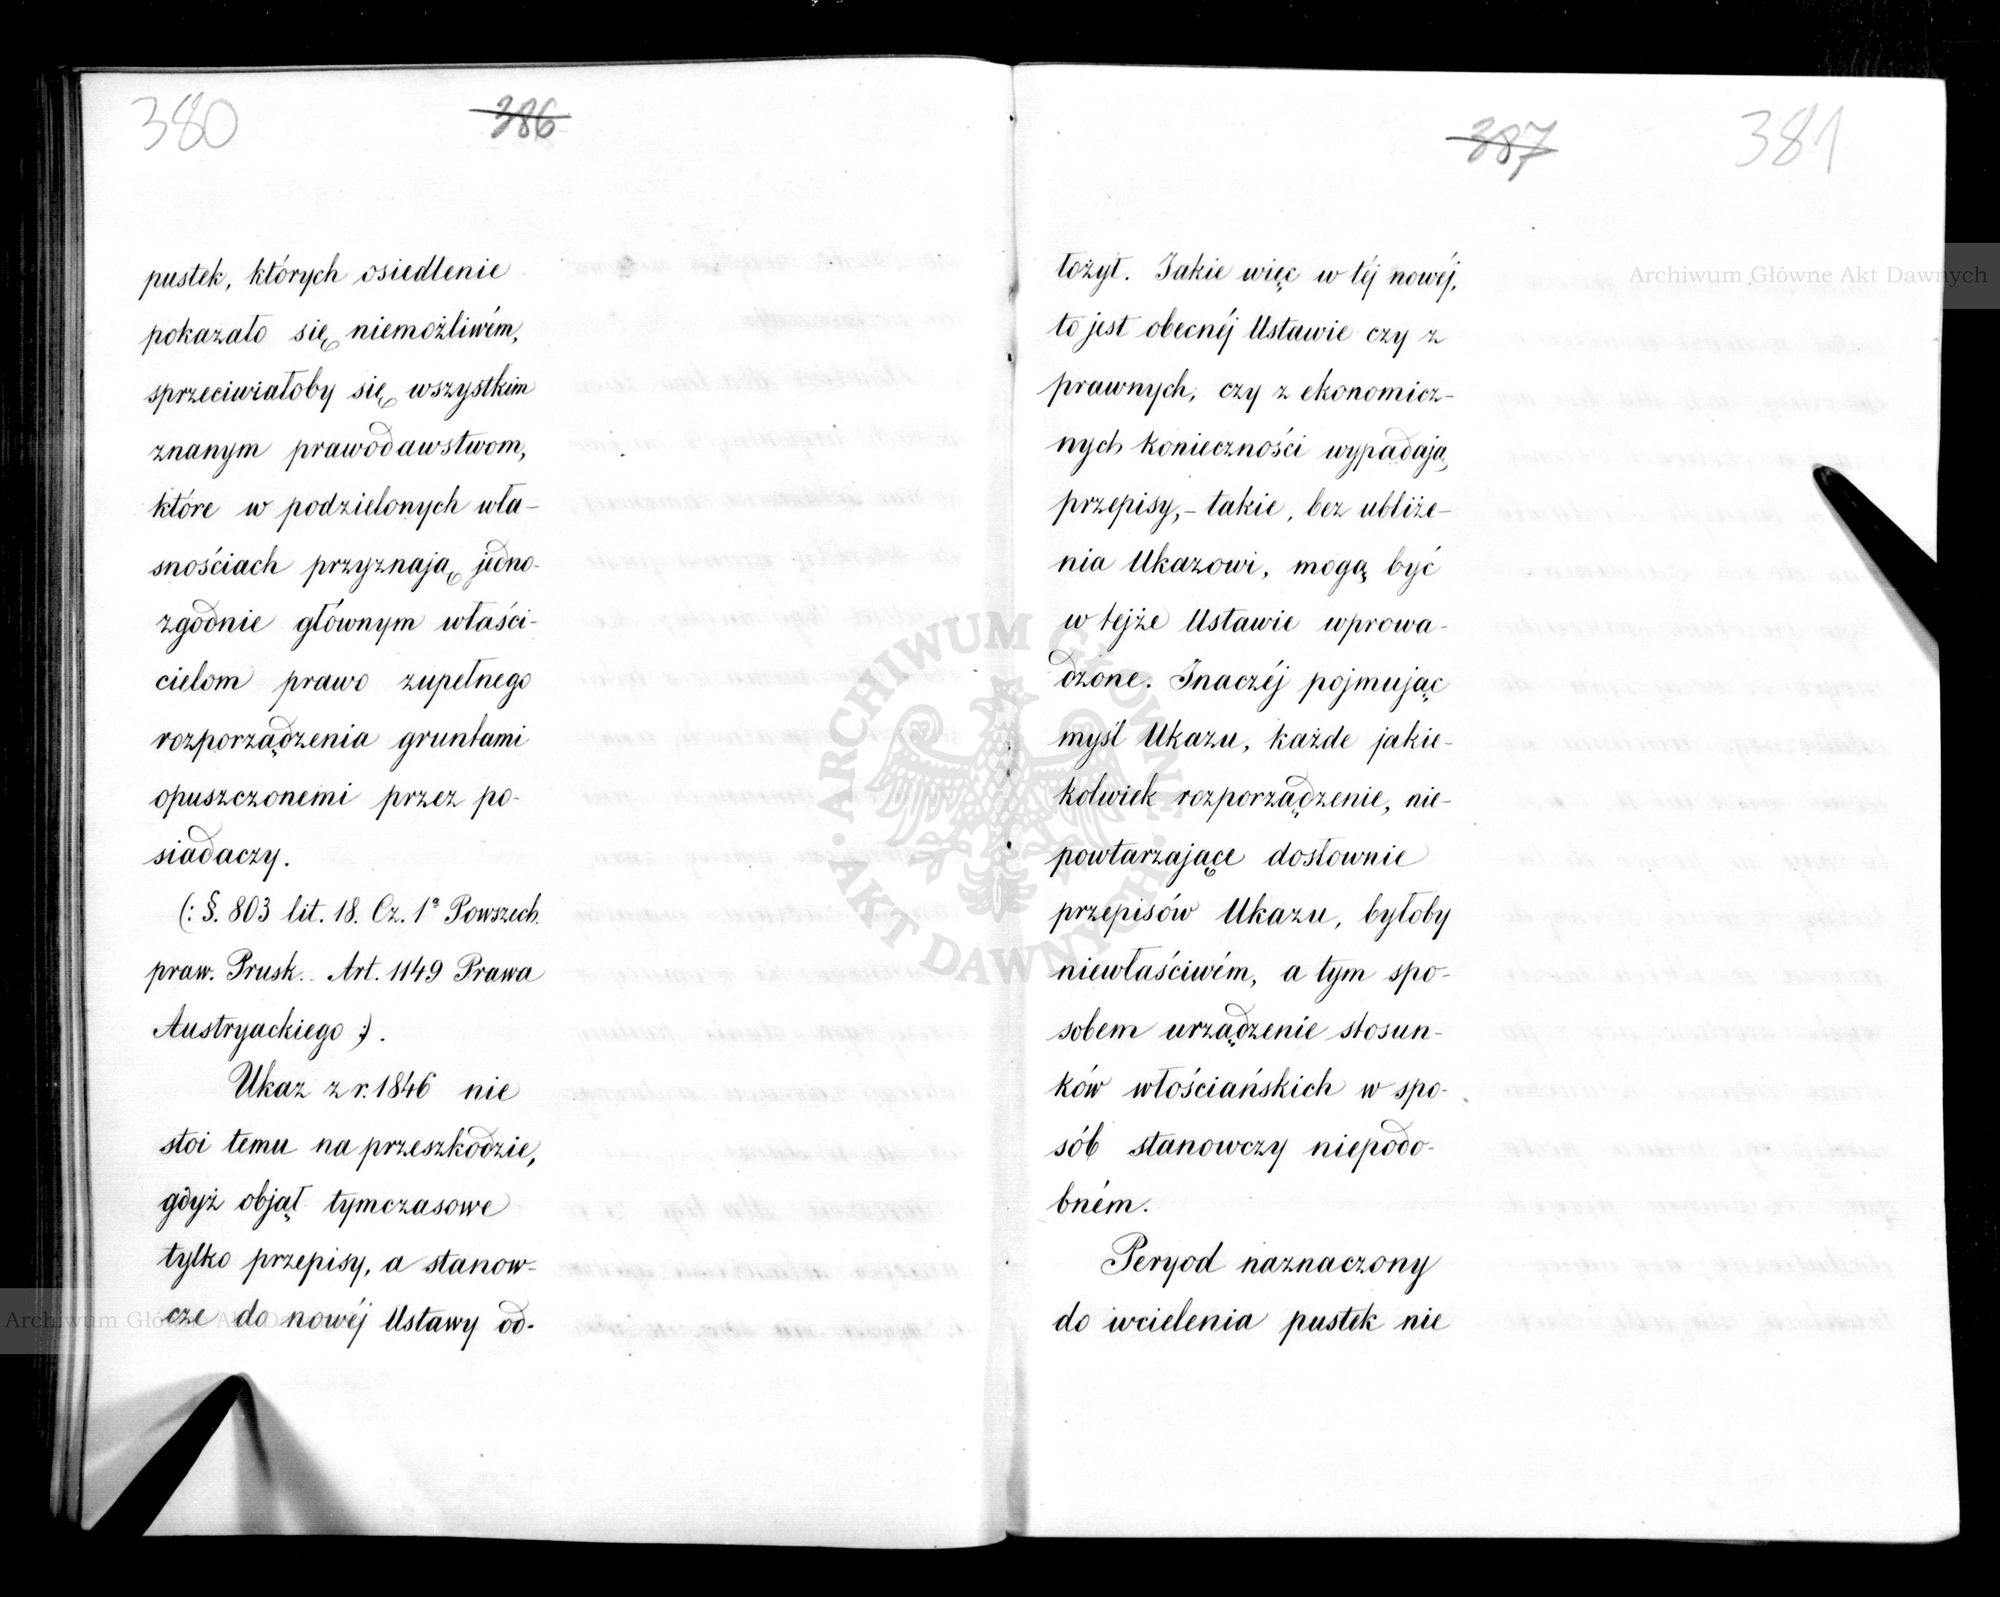 380
386
pustek, których osiedlenie
pokazało się niemożliwém,
sprzeciwiałoby się wszystkim
znanym prawodawstwom,
które w podzielonych wła-
snościach przyznają jedno-
zgodnie głównym właści-
cielom prawo zupełnego
rozporządzenia gruntami
opuszczonemi przez po-
siadaczy.
(: §. 803 lit. 18. Cz. 1ª Powszech.
praw. Prusk. Art. 1149 Prawa
Austryackiego :).
Ukaz z r. 1846 nie
stoi temu na przeszkodzie,
gdyż objął tymczasowe
tylko przepisy, a stanow-
cze do nowéj Ustawy od-
387
381
łożył. Jakie więc w téj nowéj,
to jest obecnéj Ustawie czy z
prawnych, czy z ekonomicz-
nych konieczności wypadają
przepisy, - takie, bez ubliże-
nia Ukazowi, mogą być
w tejże Ustawie wprowa-
dzone. Inaczéj pojmując
myśl Ukazu, każde jakie-
kolwiek rozporządzenie, nie-
powtarzające dosłownie
przepisów Ukazu, byłoby
niewłaściwém, a tym spo-
sobem urządzenie stosun-
ków włościańskich w spo-
sób stanowczy niepodo-
bném.
Peryod naznaczony
do wcielenia pustek nie
Archiwum Główne Akt Dawnych
Archiwum Główne Akt Dawnych
ARCHIWUM GŁÓWNE
AKT DAWNYCH